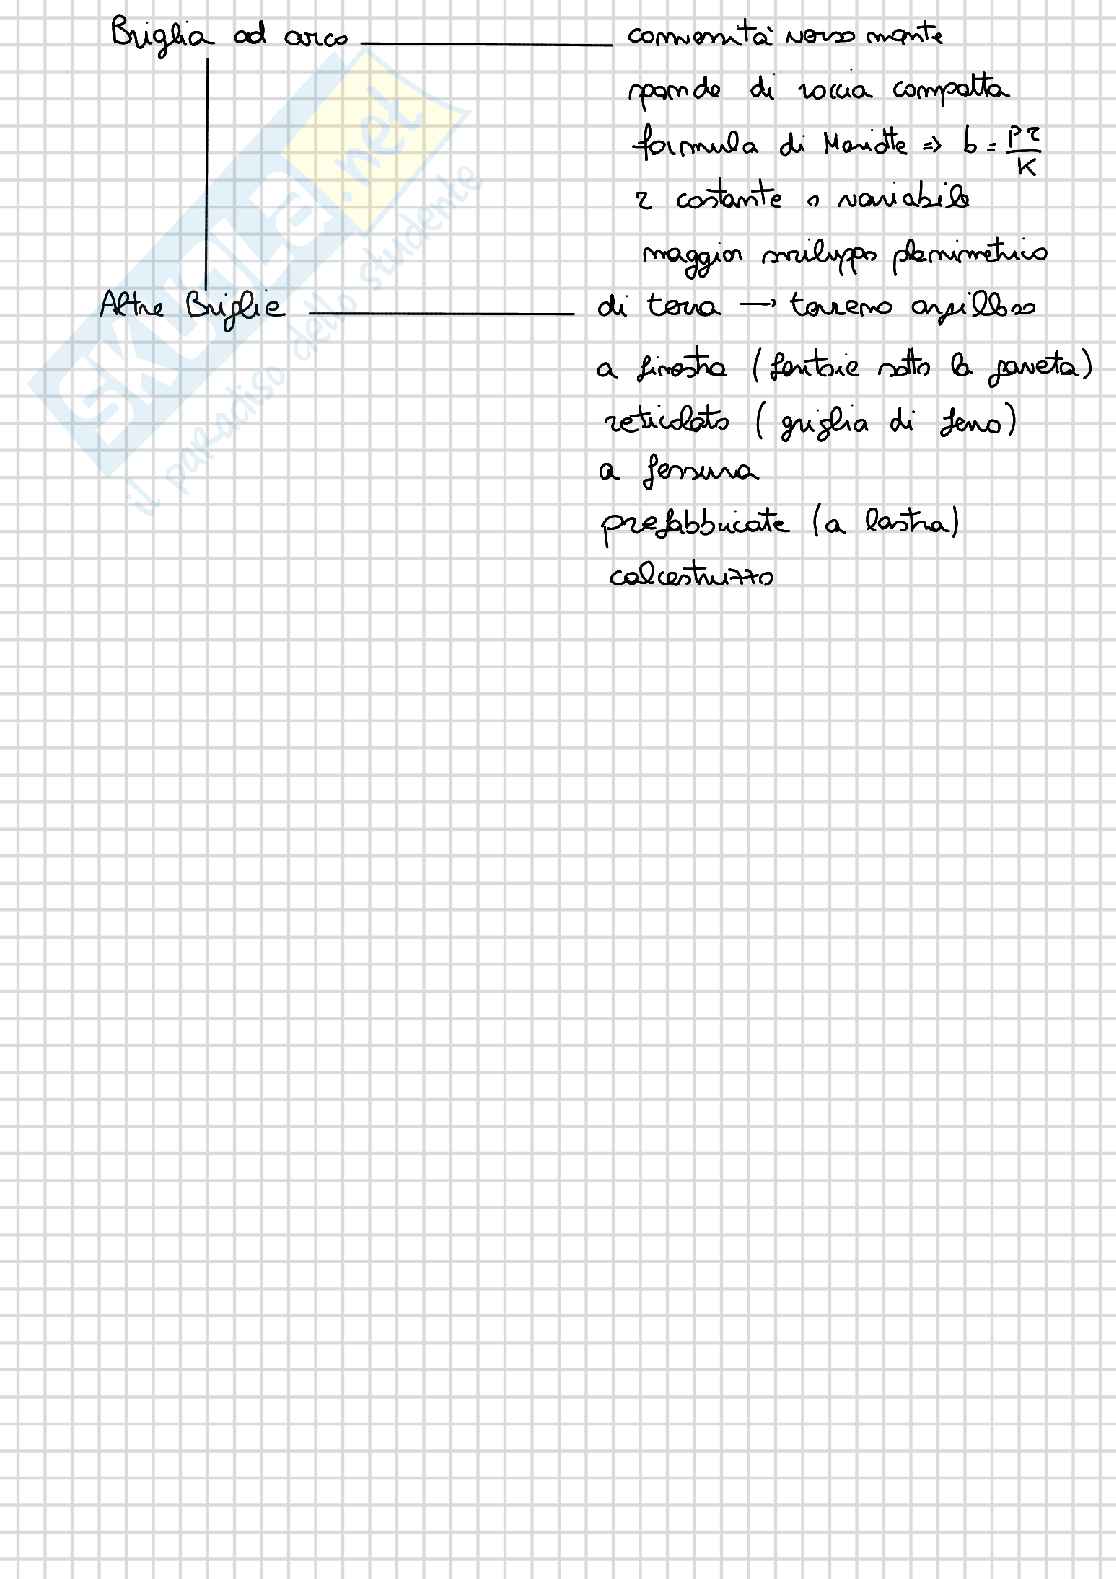 Briglia ad arco convessità verso monte
sponde di roccia compatta
formula di Mariotte => b = pr/K
r costante o variabile
maggior sviluppo planimetrico
Altre Briglie di terra → terreno argilloso
a finestra (feritoie sotto la gaveta)
reticolato (griglia di ferro)
a fessura
prefabbricate (a lastra)
calcestruzzo
SKUOLA.net
il paradiso dello studente